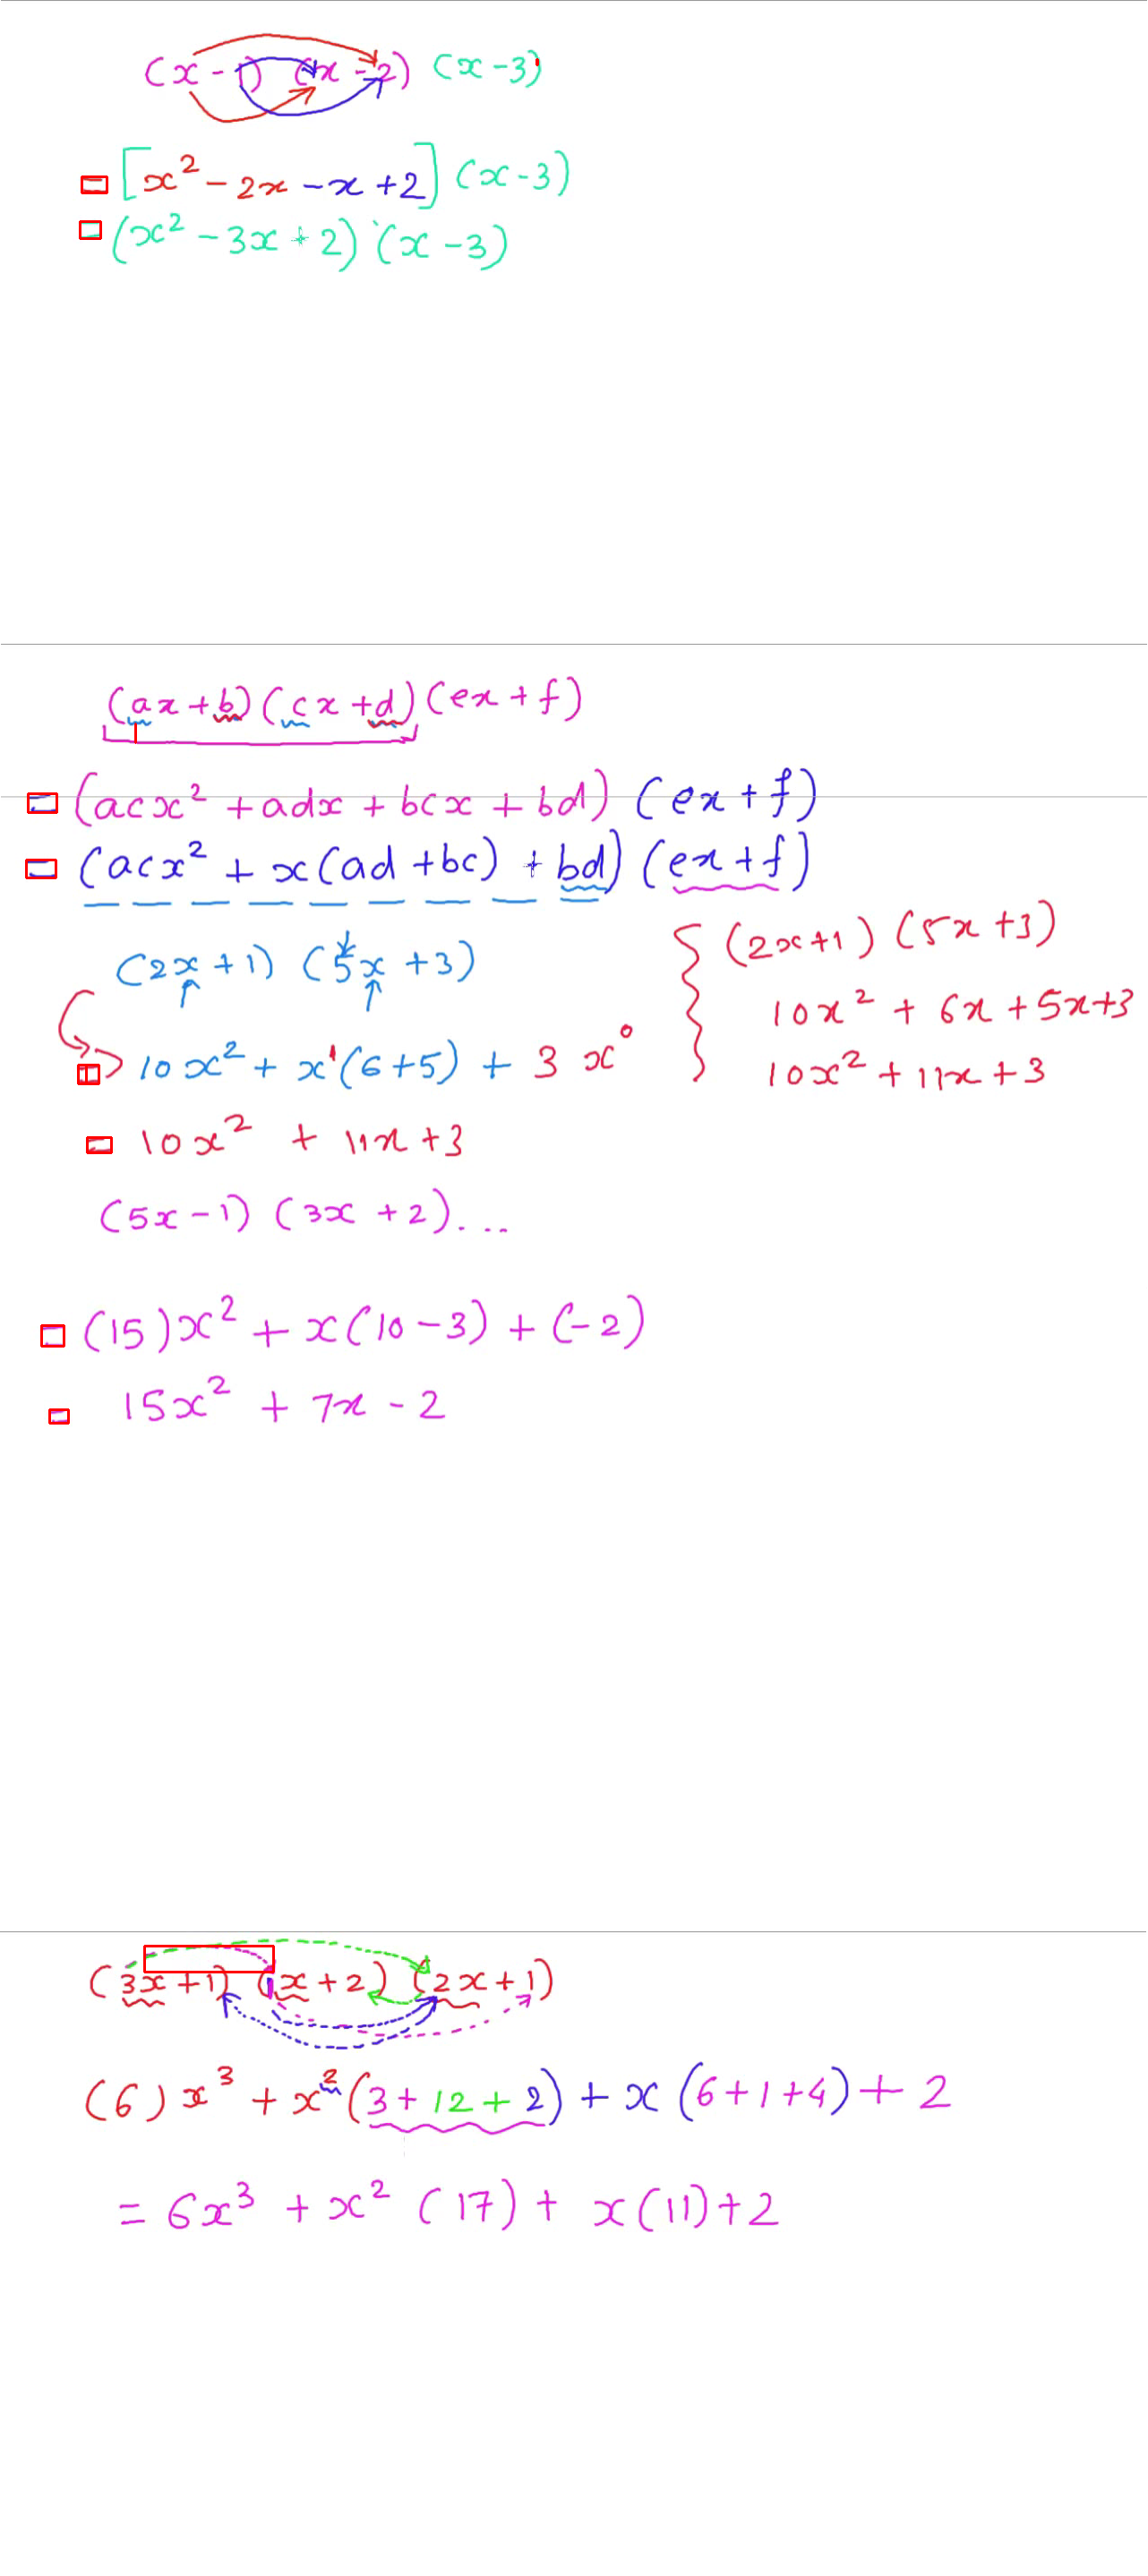 (x - 1) (x - 2) (x - 3)
= [x² - 2x - x + 2] (x - 3)
= (x² - 3x + 2) (x - 3)
(ax + b) (cx + d) (ex + f)
= (acx² + adx + bcx + bd) (ex + f)
= (acx² + x(ad + bc) + bd) (ex + f)
(2x + 1) (5x + 3)
= 10x² + x¹(6 + 5) + 3 x⁰
= 10x² + 11x + 3
{ (2x + 1) (5x + 3)
10x² + 6x + 5x + 3
10x² + 11x + 3
(5x - 1) (3x + 2)...
= (15)x² + x(10 - 3) + (-2)
= 15x² + 7x - 2
(3x + 1) (x + 2) (2x + 1)
(6)x³ + x²(3 + 12 + 2) + x(6 + 1 + 4) + 2
= 6x³ + x² (17) + x(11) + 2